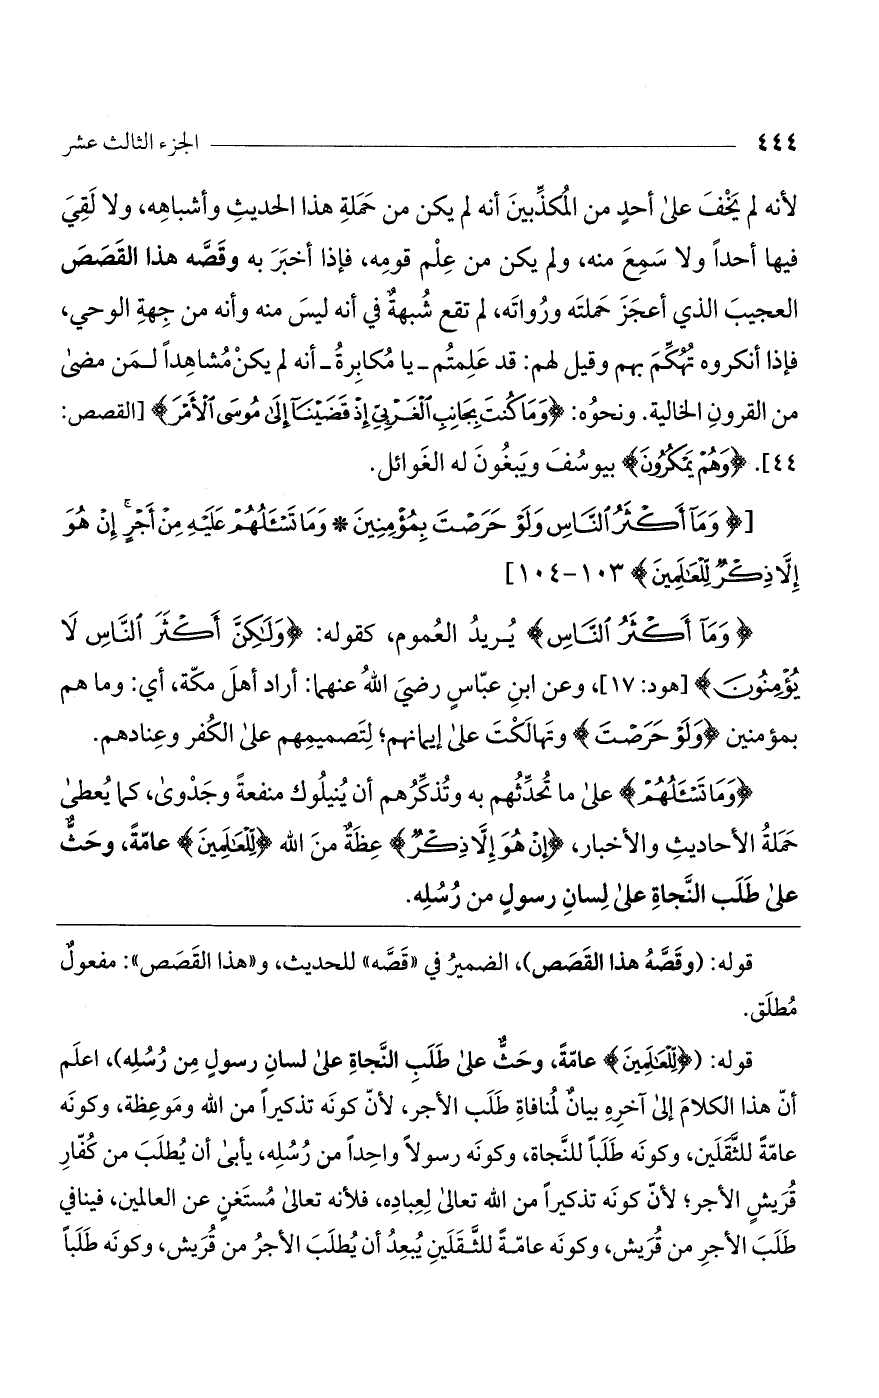 ٤٤٤ الجزء الثالث عشر
لأنه لم يَخْفَ علىٰ أحدٍ من المُكذِّبينَ أنه لم يكن من حَمَلةِ هذا الحديثِ وأشباهِه، ولا لَقِيَ
فيها أحداً ولا سَمِعَ منه، ولم يكن من عِلْم قومِه، فإذا أخبَرَ به وقَصَّه هذا القَصَصَ
العجيبَ الذي أعجَزَ حَملتَه ورُواتَه، لم تقع شُبهةٌ في أنه ليسَ منه وأنه من جِهةِ الوحي،
فإذا أنكروه تُهُكِّمَ بهم وقيل لهم: قد عَلِمتُم ـ يا مُكابِرةُ ـ أنه لم يكنْ مُشاهِداً لـمَن مضىٰ
من القرونِ الخالية. ونحوُه: ﴿وَمَا كُنتَ بِجَانِبِ ٱلْغَرْبِيِّ إِذْ قَضَيْنَآ إِلَىٰ مُوسَى ٱلْأَمْرَ﴾ [القصص:
٤٤]. ﴿وَهُمْ يَمْكُرُونَ﴾ بيوسُفَ ويَبغُونَ له الغَوائل.
[﴿وَمَآ أَكْثَرُ ٱلنَّاسِ وَلَوْ حَرَصْتَ بِمُؤْمِنِينَ * وَمَا تَسْـَٔلُهُمْ عَلَيْهِ مِنْ أَجْرٍ ۚ إِنْ هُوَ
إِلَّا ذِكْرٌ لِّلْعَٰلَمِينَ﴾ ١٠٣-١٠٤]
﴿وَمَآ أَكْثَرُ ٱلنَّاسِ﴾ يُـريدُ العُموم، كقوله: ﴿وَلَٰكِنَّ أَكْثَرَ ٱلنَّاسِ لَا
يُؤْمِنُونَ﴾ [هود: ١٧]، وعن ابنِ عبّاسٍ رضيَ اللهُ عنهما: أراد أهلَ مكّة، أي: وما هم
بمؤمنين ﴿وَلَوْ حَرَصْتَ﴾ وتهالَكْتَ علىٰ إيمانهم؛ لِتَصميمِهم علىٰ الكُفر وعِنادهم.
﴿وَمَا تَسْـَٔلُهُمْ﴾ علىٰ ما تُحدِّثُهم به وتُذكِّرُهم أن يُنيلُوك منفعةً وجَدْوىٰ، كما يُعطىٰ
حَمَلةُ الأحاديثِ والأخبار، ﴿إِنْ هُوَ إِلَّا ذِكْرٌ﴾ عِظَةٌ منَ الله ﴿لِّلْعَٰلَمِينَ﴾ عامّةً، وحَثٌّ
علىٰ طَلَب النَّجاةِ علىٰ لِسانِ رسولٍ من رُسُلِه.
قوله: (وقَصَّهُ هذا القَصَص)، الضميرُ في «قَصَّه» للحديث، و«هذا القَصَص»: مفعولٌ
مُطلَق.
قوله: (﴿لِّلْعَٰلَمِينَ﴾ عامّةً، وحَثٌّ علىٰ طَلَبِ النَّجاةِ علىٰ لسانِ رسولٍ مِن رُسُلِه)، اعلَم
أنّ هذا الكلامَ إلىٰ آخرِه بيانٌ لمُنافاةِ طَلَب الأجر، لأنّ كونَه تذكيراً من الله ومَوعِظة، وكونَه
عامّةً للثَّقَلَين، وكونَه طَلَباً للنَّجاة، وكونَه رسولاً واحِداً من رُسُلِه، يأبىٰ أن يُطلَبَ من كُفّارِ
قُرَيشٍ الأجر؛ لأنّ كونَه تذكيراً من الله تعالىٰ لِعِبادِه، فلأنه تعالىٰ مُستَغنٍ عن العالمين، فينافي
طَلَبَ الأجرِ من قُرَيش، وكونَه عامّـةً للثَّـقَلَينِ يُبعِدُ أن يُطلَبَ الأجرُ من قُرَيش، وكونَه طَلَباً